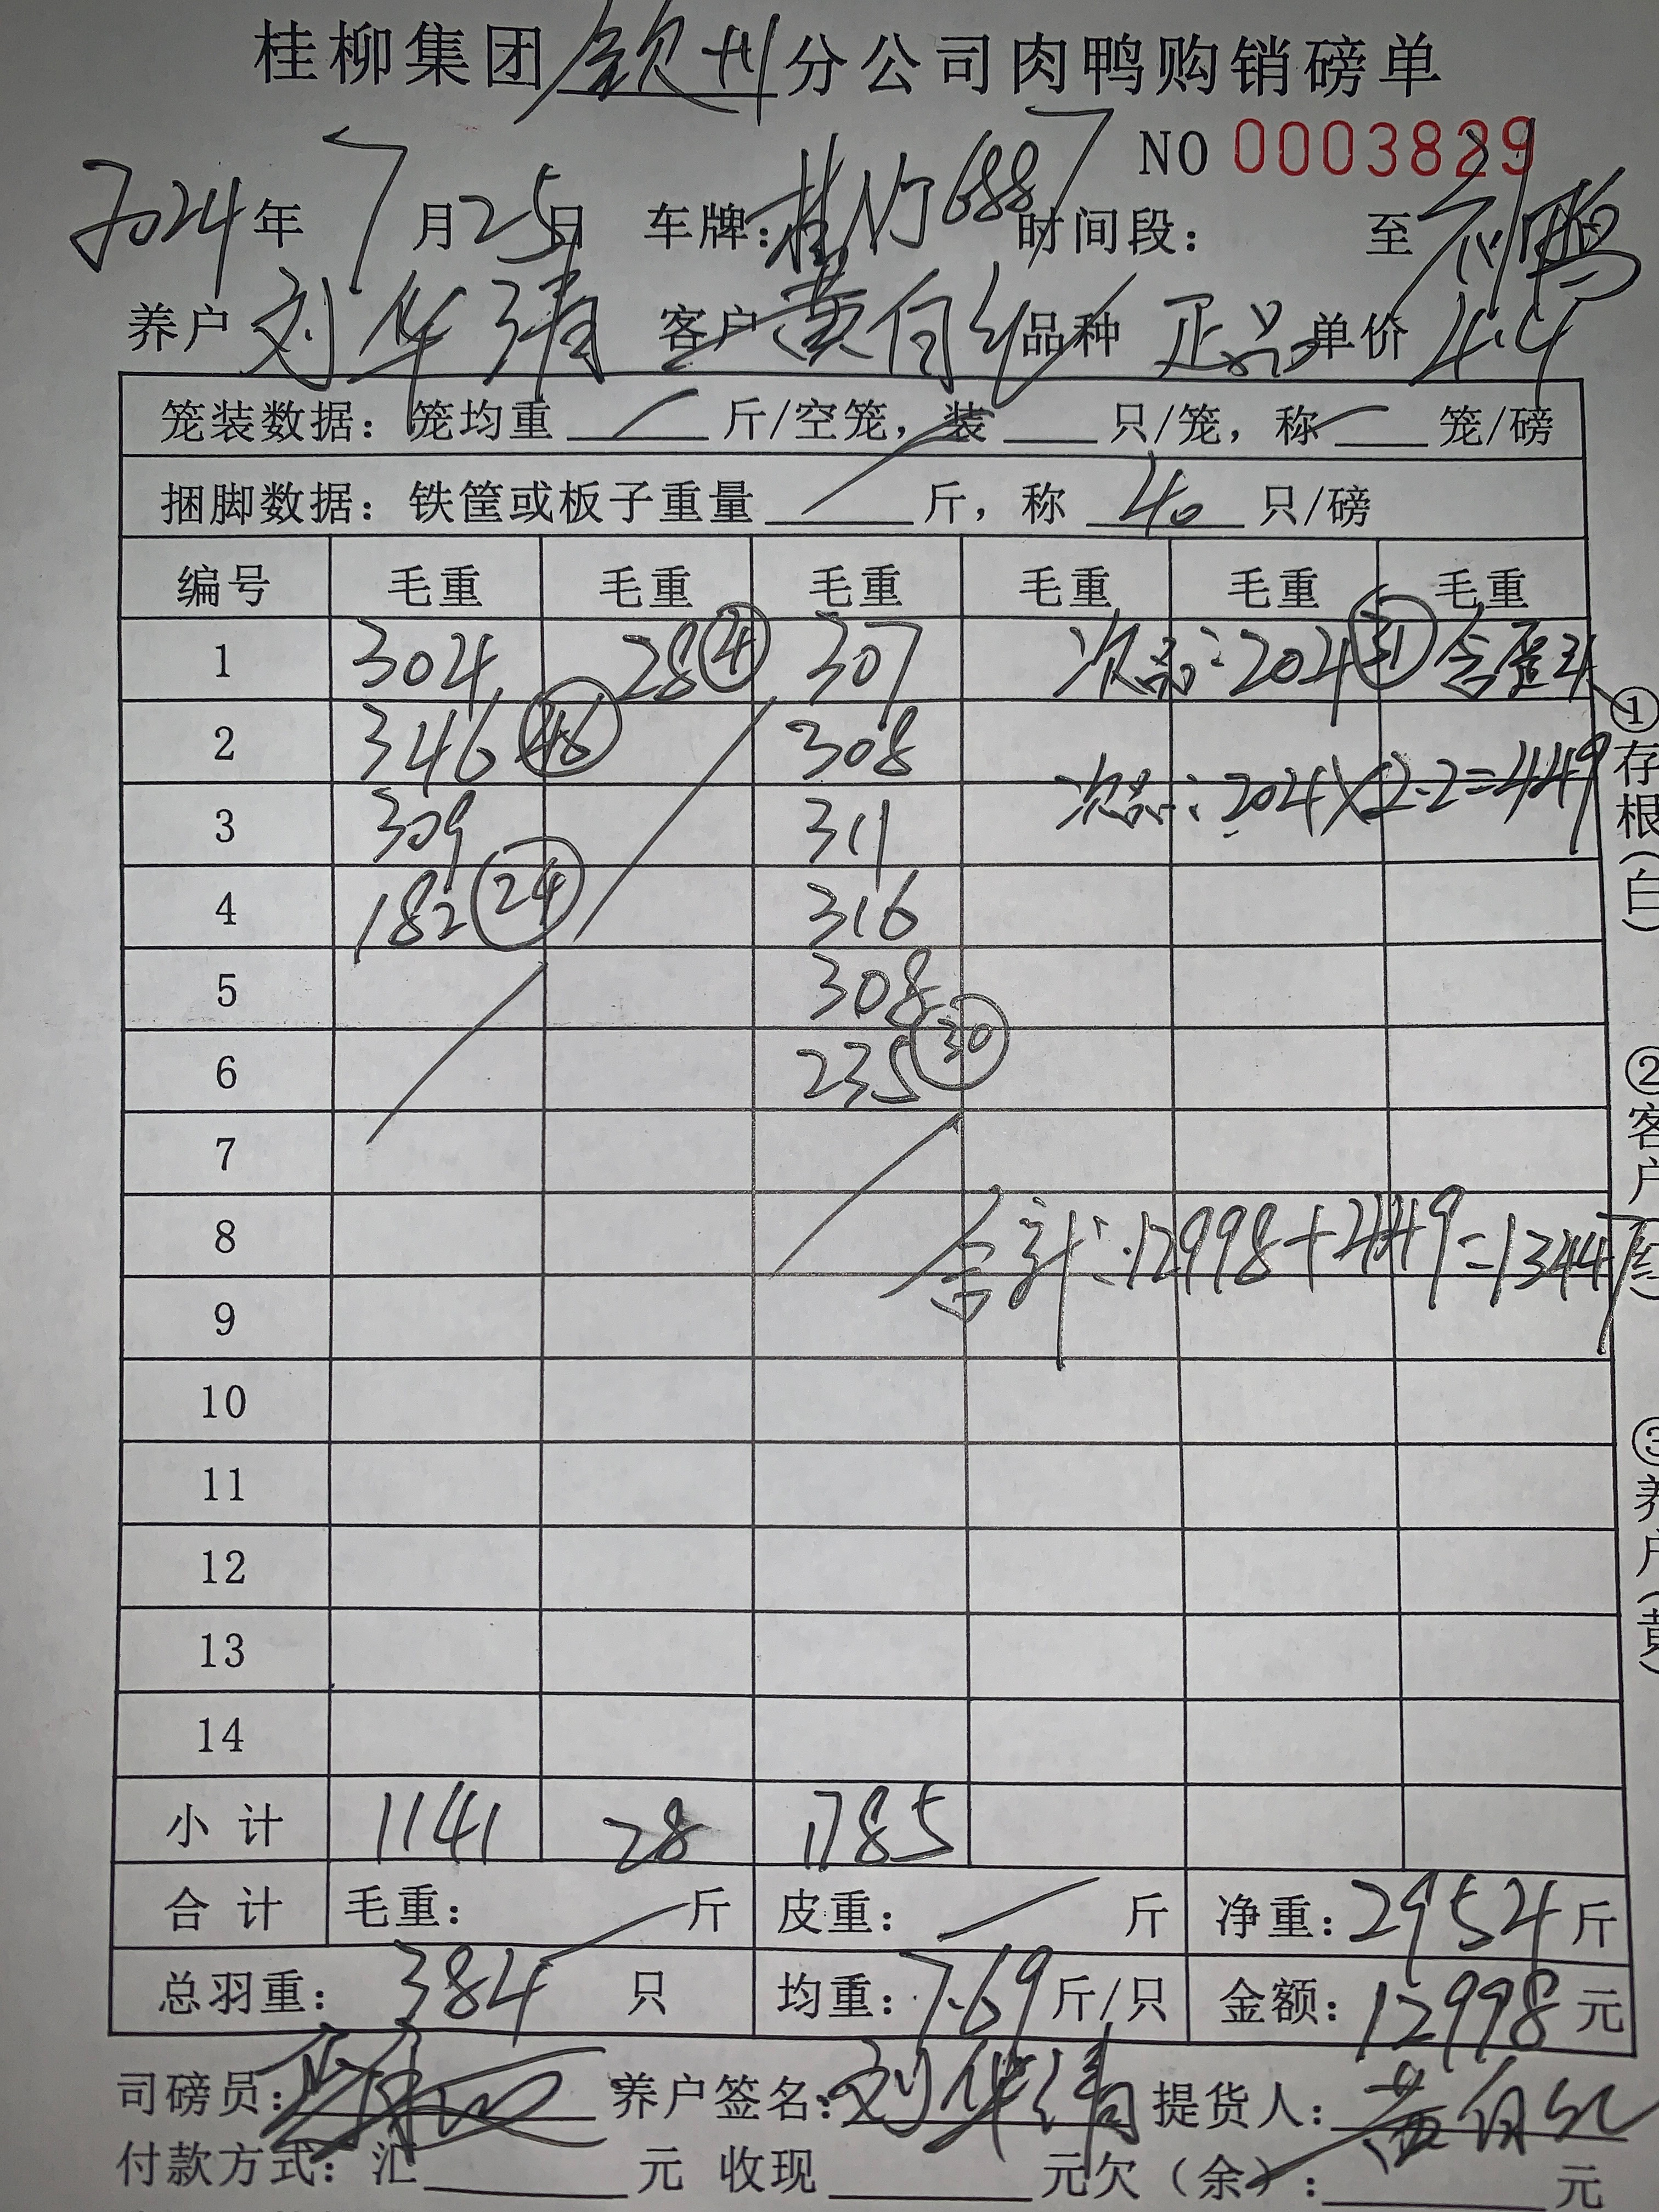 桂柳集团钦州分公司肉鸭购销磅单
NO 0003829
2024年7月25日 车牌：桂N 6887 时间段： 至
养户 刘华清 客户 黄自纪 品种 正品 单价 4.4
笼装数据：笼均重 斤/空笼，装 只/笼，称 笼/磅
捆脚数据：铁筐或板子重量 斤，称 40 只/磅
编号 毛重 毛重 毛重 毛重 毛重 毛重
1 304 28 ④ 307 次品：204 31
2 346 46 308
3 309 311 次品：204×2.2=449
4 182 24 316
5 308
6 235 30
7
8 合计：12998+449=13447
9
10
11
12
13
14
小计 1141 28 1785
合计 毛重： 斤 皮重： 斤 净重：2954 斤
总羽重：384 只 均重：7.69 斤/只 金额：12998 元
司磅员： 养户签名：刘华清 提货人：黄自纪
付款方式：汇 元 收现 元 欠（余）： 元
①存根（白）
②客户（红）
③养户（黄）